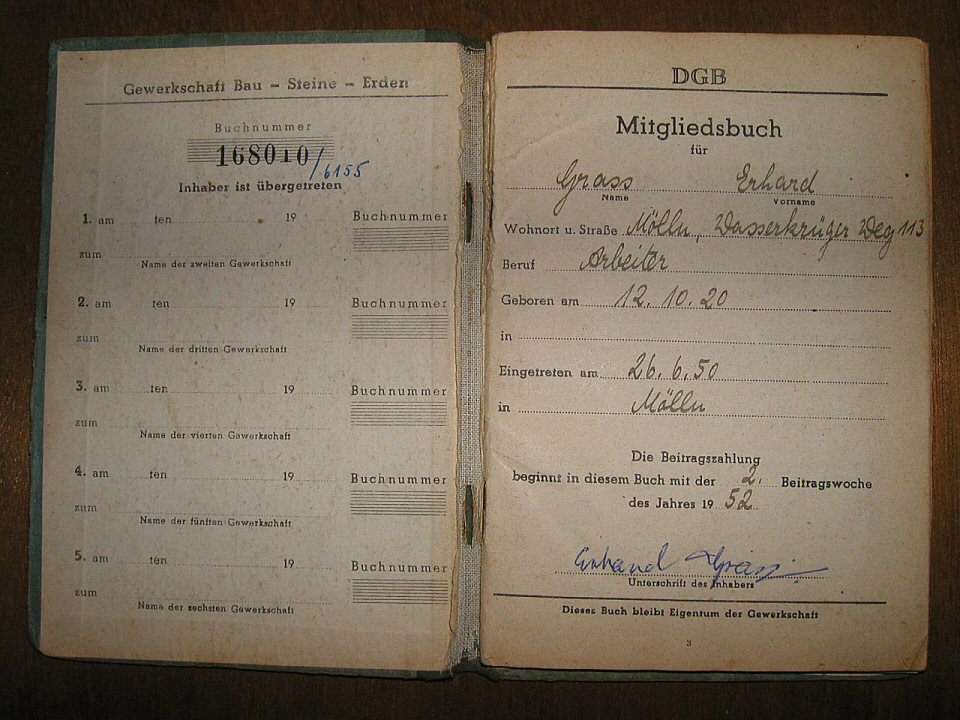 Gewerkschaft Bau – Steine – Erden
Buchnummer
168010/6155
Inhaber ist übergetreten
1. am ten 19 Buchnummer
zum
Name der zweiten Gewerkschaft
2. am ten 19 Buchnummer
zum
Name der dritten Gewerkschaft
3. am ten 19 Buchnummer
zum
Name der vierten Gewerkschaft
4. am ten 19 Buchnummer
zum
Name der fünften Gewerkschaft
5. am ten 19 Buchnummer
zum
Name der sechsten Gewerkschaft
DGB
Mitgliedsbuch
für
Grass Erhard
Name Vorname
Wohnort u. Straße Mölln, Wasserkrüger Weg 113
Beruf Arbeiter
Geboren am 12. 10. 20
in
Eingetreten am 26. 6. 50
in Mölln
Die Beitragszahlung
beginnt in diesem Buch mit der 2. Beitragswoche
des Jahres 19 52
Erhard Grass
Unterschrift des Inhabers
Dieses Buch bleibt Eigentum der Gewerkschaft
3